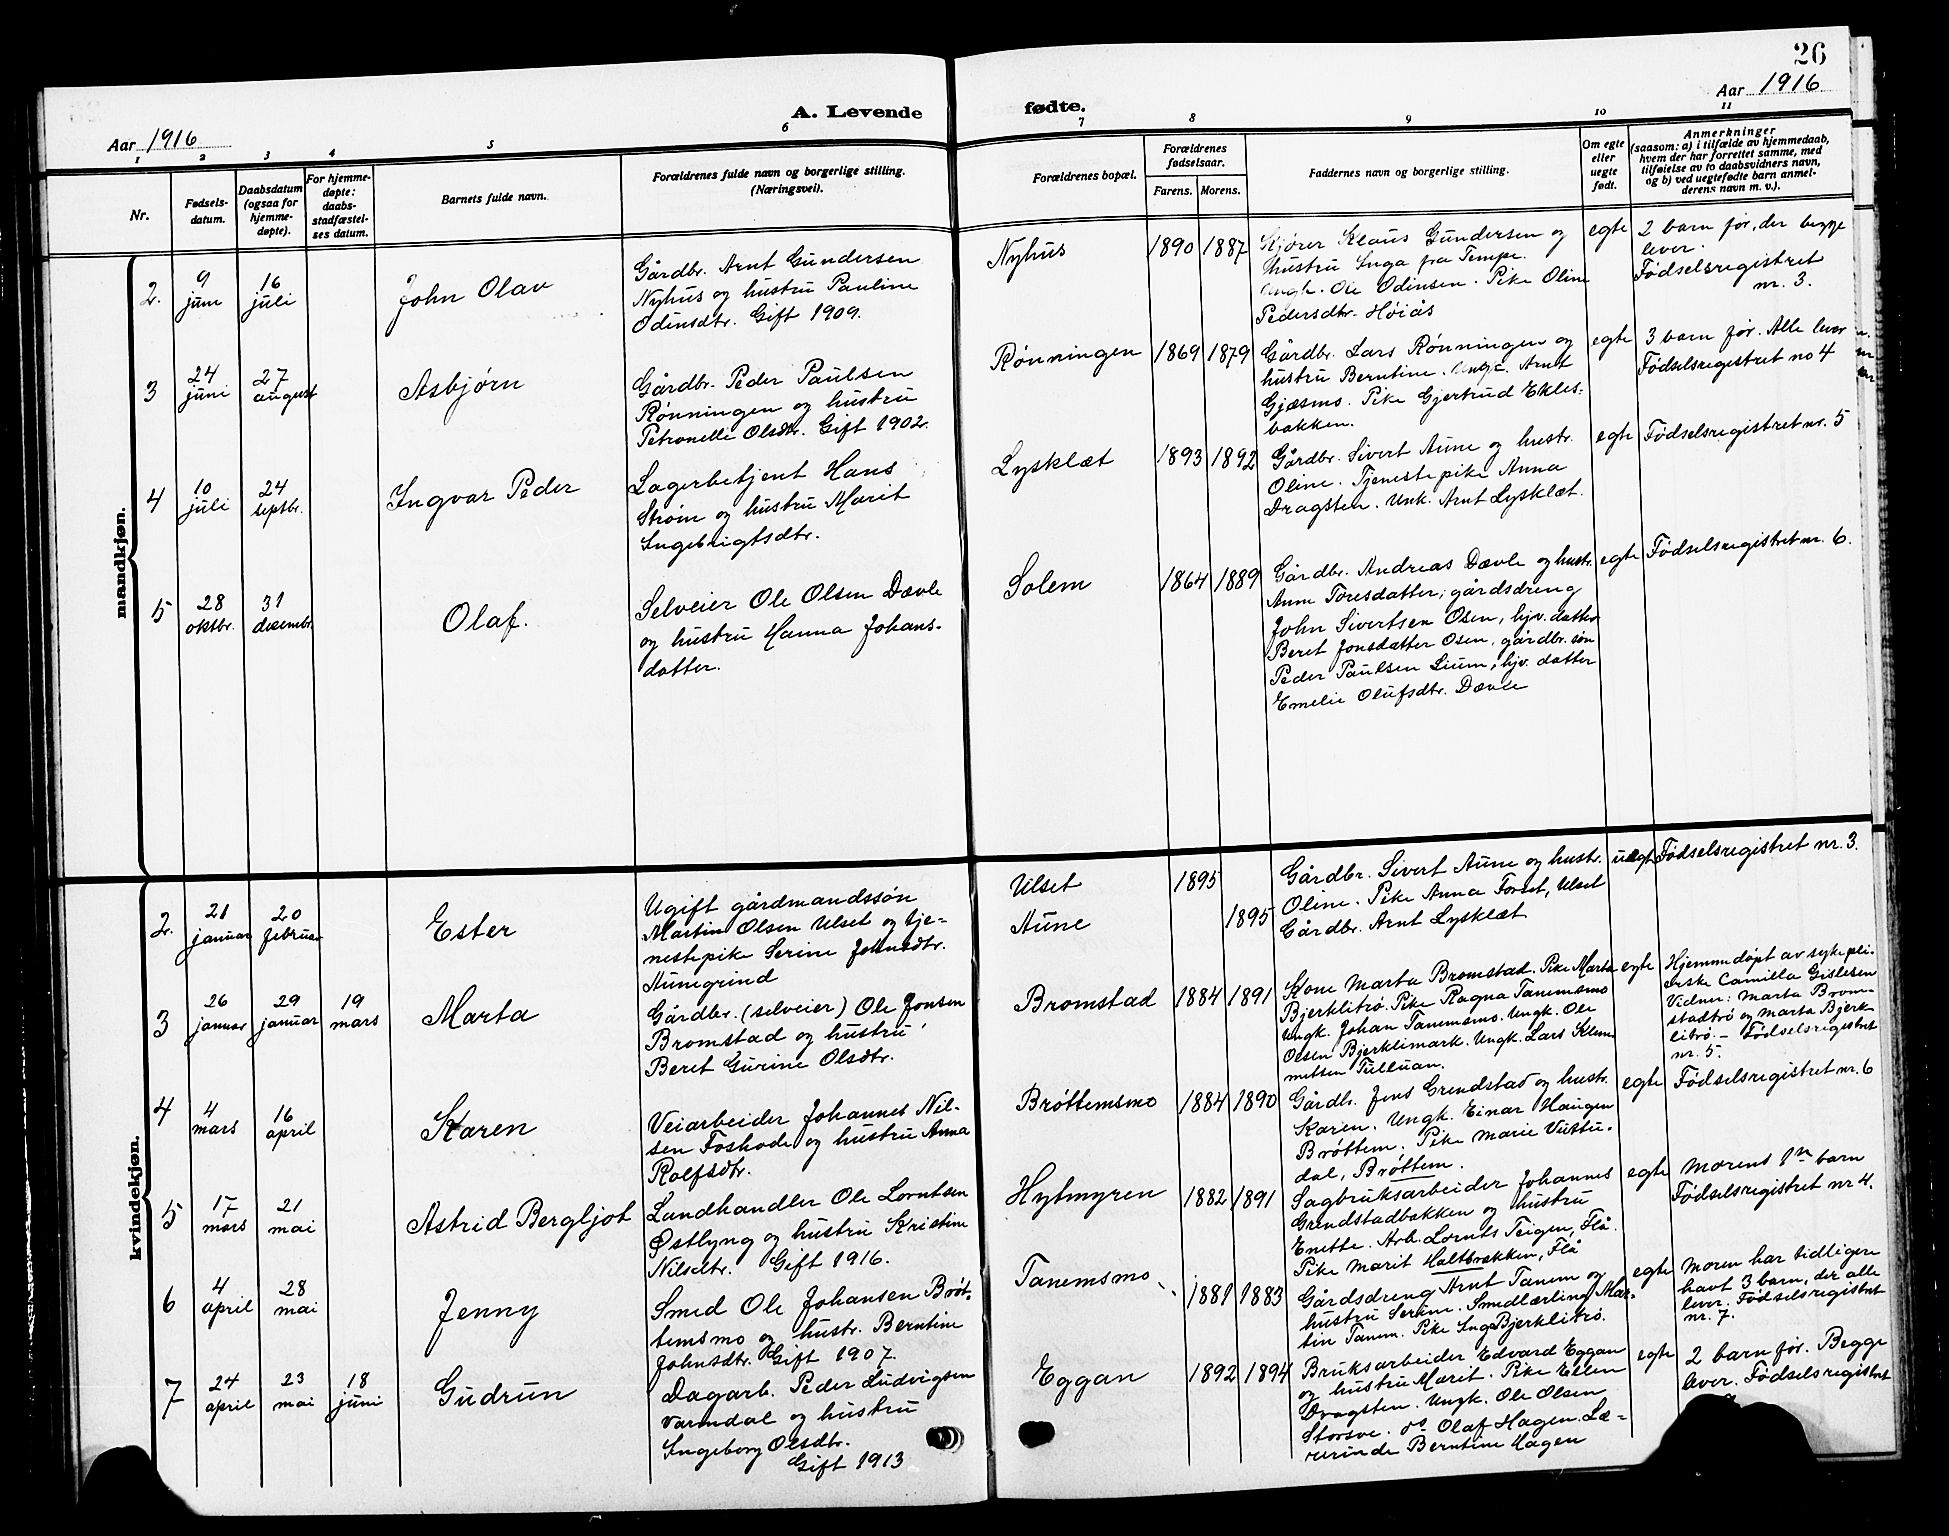 26
A. Levende
fødte.
Aar 1916
Aar 1916
1 2 3 4 5 6 7 8 9 10 11
Nr.
Fødsels-
datum.
Daabsdatum
(ogsaa for
hjemme-
døpte).
For hjemme-
døpte:
daabs-
stadfæstel-
ses datum.
Barnets fulde navn.
Forældrenes fulde navn og borgerlige stilling.
(Næringsvei).
Forældrenes bopæl.
Forældrenes
fødselsaar.
Farens. Morens.
Faddernes navn og borgerlige stilling.
Om egte
eller
uegte
født.
Anmerkninger
(saasom: a) i tilfælde av hjemmedaab,
hvem der har forrettet samme, med
tilføielse av to daabsvidners navn,
og b) ved uegtefødte barn anmel-
derens navn m. v.).
mandkjøn.
2.
9
juni
16
juli
John Olav
Gårdbr. Arnt Gundersen
Nyhus og hustru Pauline
Odinsdtr. Gift 1909.
Nyhus
1890 1887
Kjører Klaus Gundersen og
hustru Inga fra Tempe.
Ungk. Ole Odinsen. Pike Oline
Pedersdtr. Høiås
egte
2 barn før, der begge
lever.
Fødselsregistret
nr. 3.
3
24
juni
27
august
Asbjørn
Gårdbr. Peder Paulsen
Rønningen og hustru
Petronelle Olsdtr. Gift 1902.
Rønningen
1869 1879
Gårdbr. Lars Rønningen og
hustru Berntine. Ungk. Arnt
Gjæsmo. Pike Gjertrud Ekles-
bakken.
egte
3 barn før. Alle lever
Fødselsregistret no 4
4
10
juli
24
septbr.
Ingvar Peder
Lagerbetjent Hans
Strøm og hustru Marit
Ingebrigtsdtr.
Lysklæt
1893 1892
Gårdbr. Sivert Aune og hustr.
Oline. Tjenestepike Anna
Dragsten. Unk. Arnt Lysklæt.
egte
Fødselsregistret nr. 5
5
28
oktbr.
31
desembr.
Olaf.
Selveier Ole Olsen Dævle
og hustru Hanna Johans-
datter.
Solem
1864 1889
Gårdbr. Andreas Dævle og hustr.
Anne Toresdatter; gårdsdreng
John Sivertsen Osen, hjv. datter
Beret Jonsdatter Osen, gårdbr. søn
Peder Paulsen Lium, hjv. datter
Emelie Olufsdtr. Dævle
egte
Fødselsregistret nr. 6.
kvindekjøn.
2.
21
januar
20
februar
Ester
Ugift gårdmandssøn
Martin Olsen Ulset og tje-
nestepike Serine Johnsdtr.
Aunegrind
Ulset
Aune
1895
1895
Gårdbr. Sivert Aune og hustr.
Oline. Pike Anna Forset, Ulset
Gårdbr. Arnt Lysklæt
uegte
Fødselsregistret nr. 3.
3
26
januar
29
januar
19
mars
Marta
Gårdbr. (selveier) Ole Jonsen
Bromstad og hustru
Beret Gurine Olsdtr.
Bromstad
1884 1891
Kone Marta Bromstad. Pike Marta
Bjerklitrø. Pike Ragna Tanemsmo
Ungk. Johan Tanemsmo. Ungk. Ole
Olsen Bjerklimark. Ungk. Lars Klem-
metsen Tulluan.
egte
Hjemmedøpt av sykeplei-
erske Camilla Gislesen
Vidner: Marta Brom-
stadtrø og Marta Bjerk-
litrø. – Fødselsregistret
nr. 5.
4
4
mars
16
april
Karen
Veiarbeider Johannes Nil-
sen Foshode og hustru Anna
Rolfsdtr.
Brøttemsmo
1884 1890
Gårdb. Jens Grendstad og hustr.
Karen. Ungk. Einar Haugen
Brøttem. Pike Marie Vuttu-
dal, Brøttem.
egte
Fødselsregistret nr. 6
5
17
mars
21
mai
Astrid Bergljot
Landhandler Ole Lorntsen
Østlyng og hustru Kristine
Nilsdtr. Gift 1916.
Hytmyren
1882 1891
Sagbruksarbeider Johannes
Grendstadbakken og hustru
Enette. Arb. Lornts Teigen, Flå.
Pike Marit Haltbakken, Flå
egte
Morens 1ste barn
Fødselsregistret nr 4.
6
4
april
28
mai
Jenny
Smed Ole Johansen Brøt-
temsmo og hustr. Berntine
Johnsdtr. Gift 1907.
Tanemsmo
1881 1883
Gårdsdreng Arnt Tanem og
hustru Serine. Smedlærling Mar-
tin Tanem. Pike Inga Bjerklitrø.
egte
Moren har tidligere
havt 3 barn, der alle
lever. Fødselsregistret
nr. 7.
7
24
april
23
mai
18
juni
Gudrun
Dagarb. Peder Ludvigsen
Varmdal og hustru
Ingeborg Olsdtr.
Gift 1913
Eggan
1892 1894
Bruksarbeider Edvard Eggan
og hustru Marit. Pike Ellen
Dragsten. Ungk. Ole Olsen
Storsve. do Olaf Hagen. Læ-
rerinde Berntine Hagen
egte
2 barn før. Begge
lever. Fødselsregistret